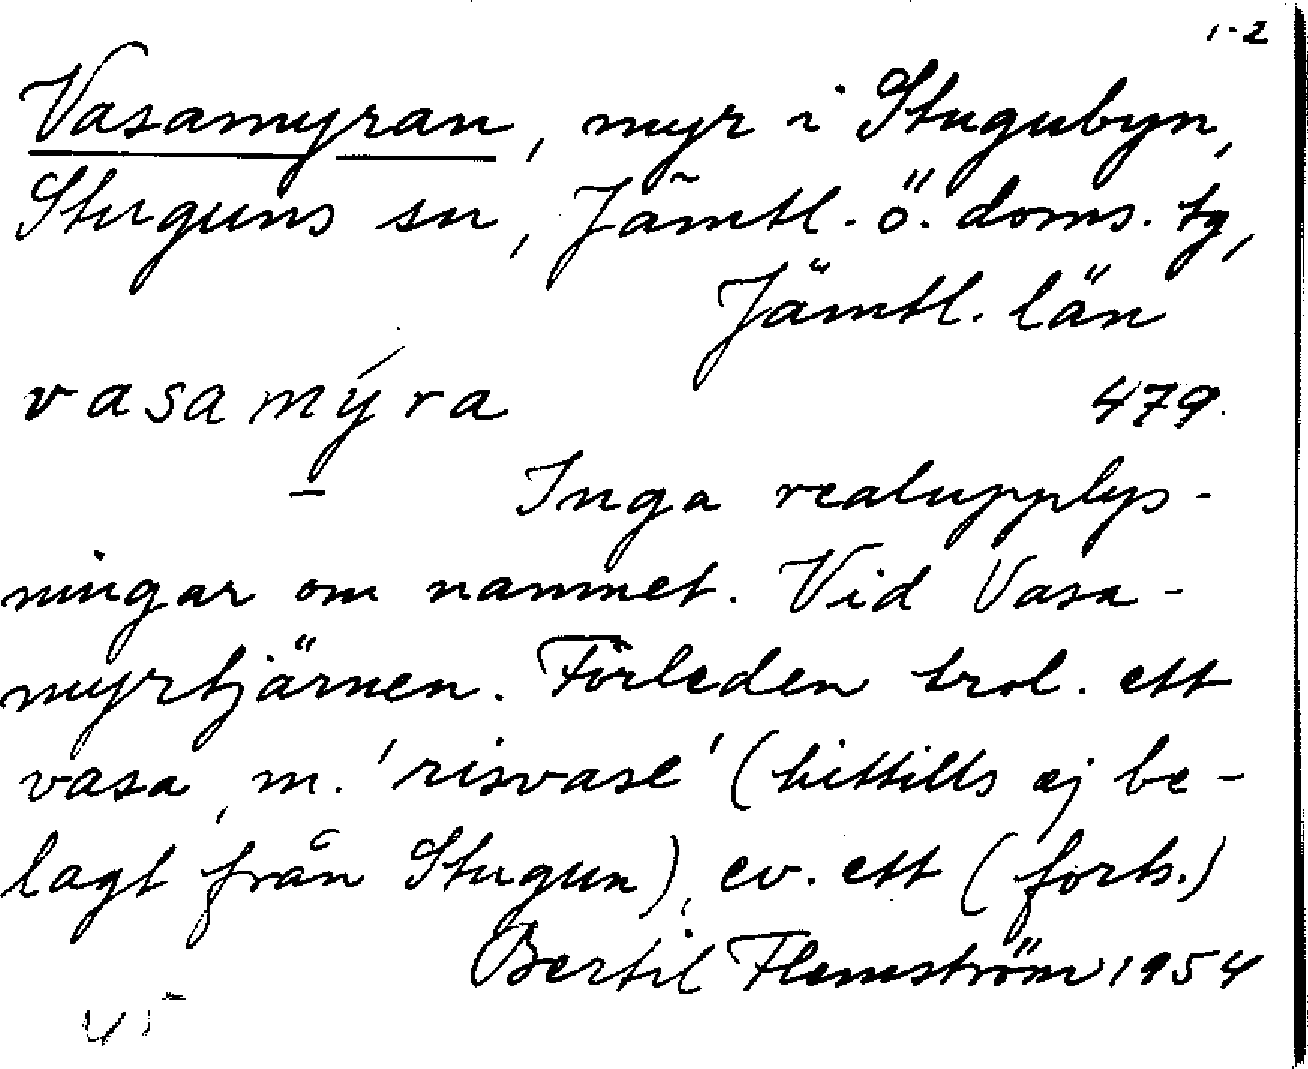 1-2
Vasamyran, myr i Stugubyn,
Stuguns sn, Jämtl. ö. doms. tg,
Jämtl. län
vasamýra 479.
Inga realupplys-
ningar om namnet. Vid Vasa-
myrtjärnen. Förleden trol. ett
vasa, m. 'risvase' (hittills ej be-
lagt från Stugun), ev. ett (forts.)
Bertil Flemström 1954